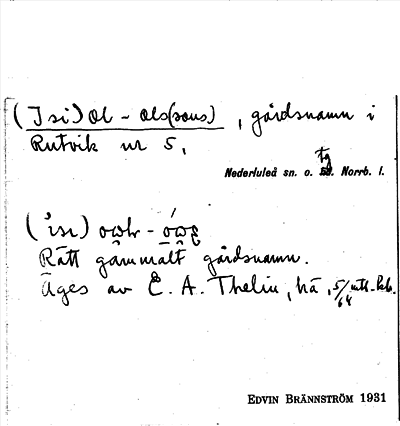 (Isi)Ol - Ols(sons), gårdsnamn i
Rutvik nr 5,
tg
Nederluleå sn. o. Norrb. l.
Rätt gammalt gårdsnamn.
Äges av E. A. Thelin, hä, 5/64
EDVIN BRÄNNSTRÖM 1931